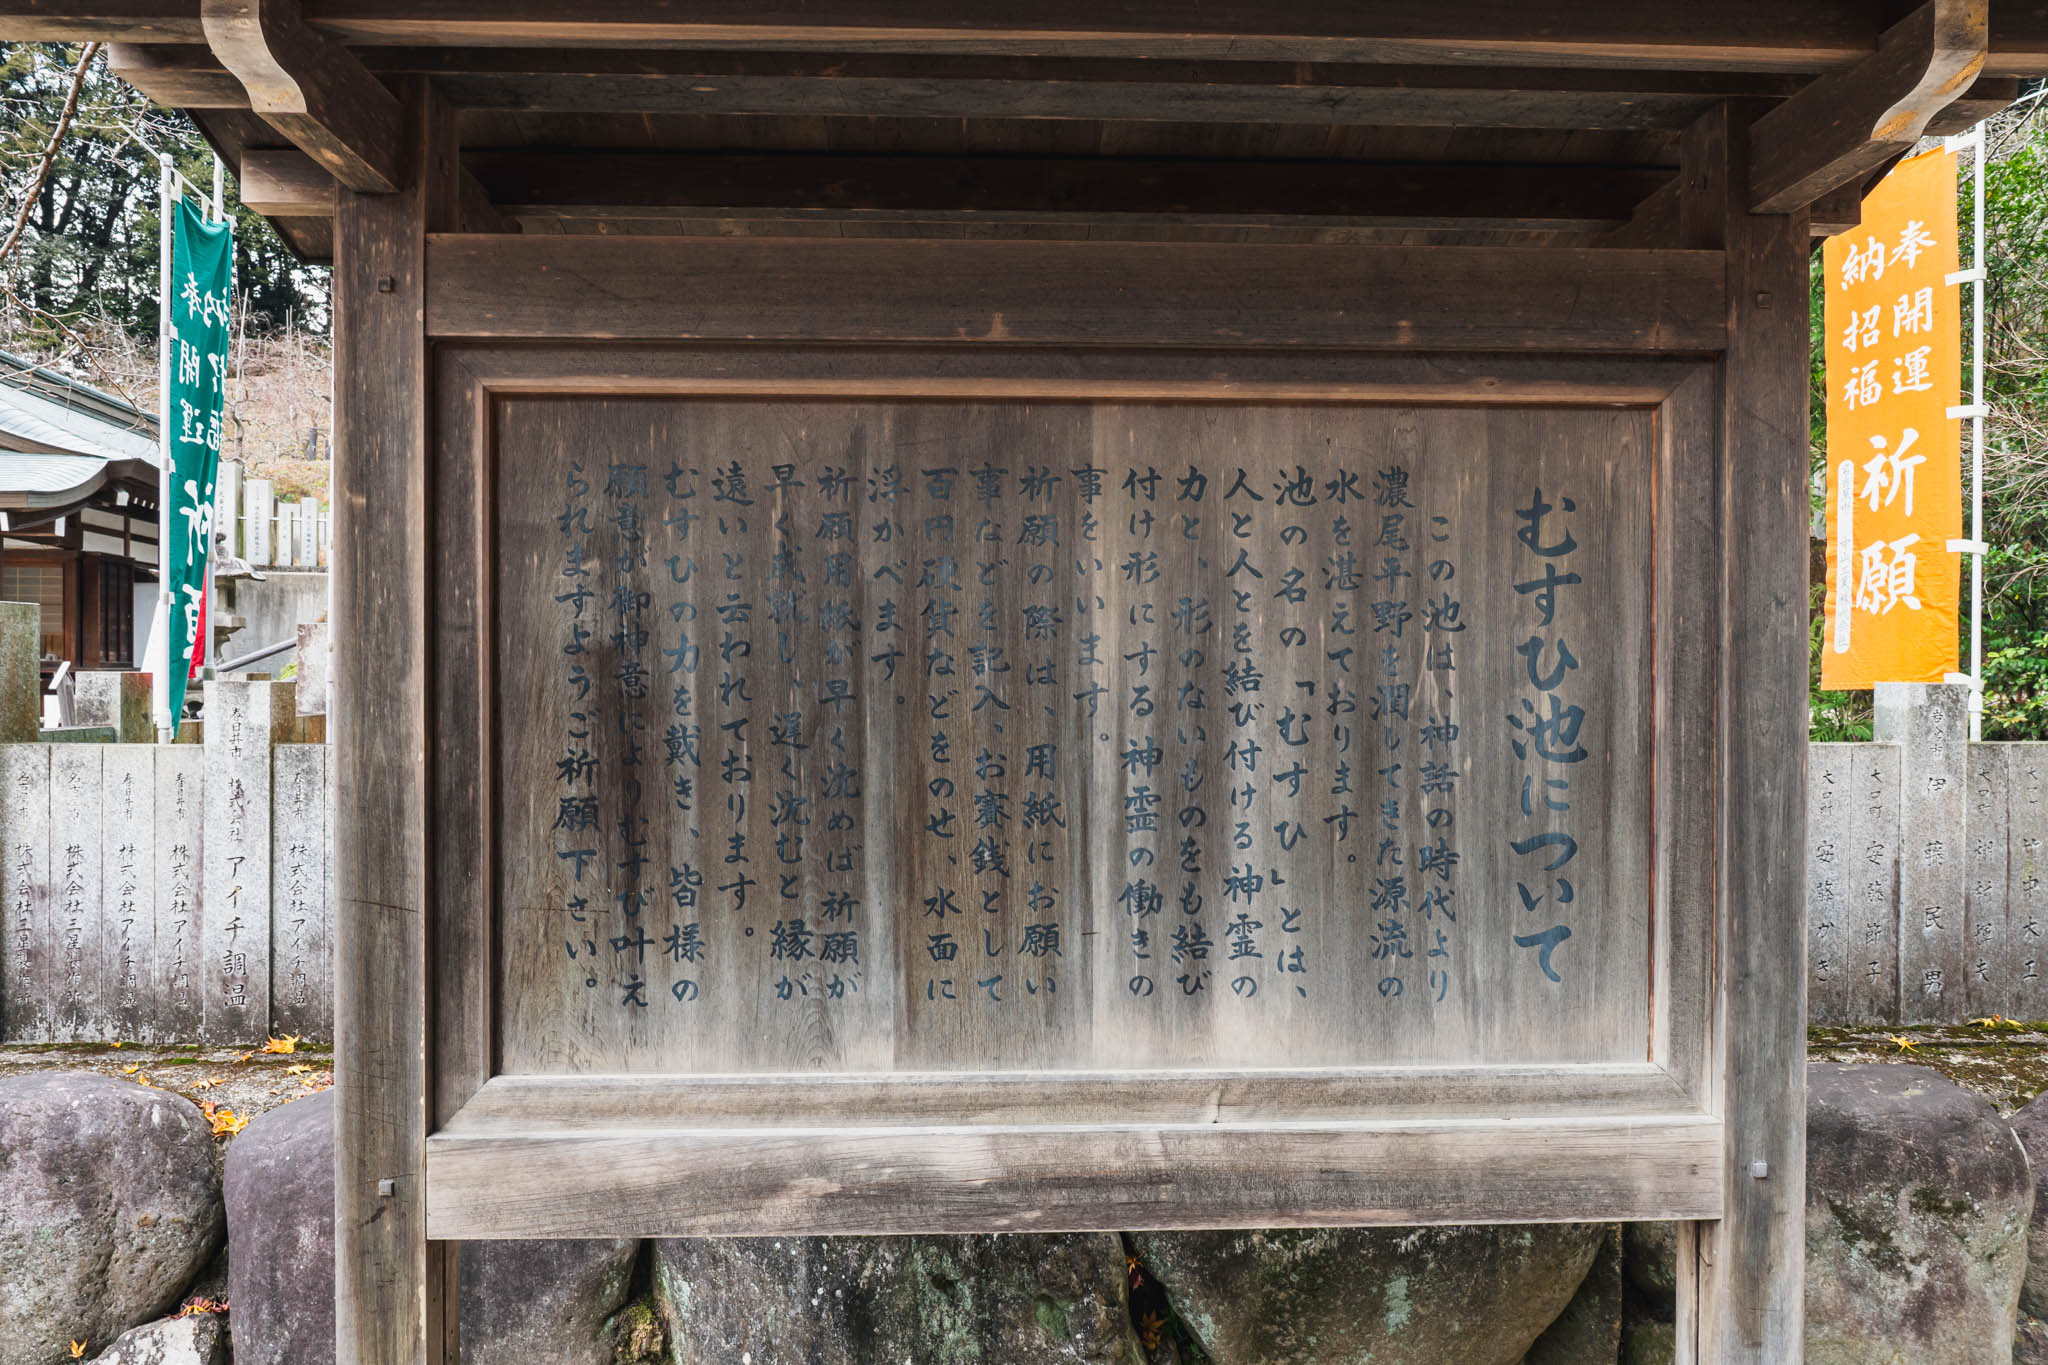 むすひ池について
この池は、神話の時代より
濃尾平野を潤してきた源流の
水を湛えております。
池の名の「むすひ」とは、
人と人とを結び付ける神霊の
力と、形のないものをも結び
付け形にする神霊の働きの
事をいいます。
祈願の際は、用紙にお願い
事などを記入、お賽銭として
百円硬貨などをのせ、水面に
浮かべます。
祈願用紙が早く沈めば祈願が
早く成就し、遅く沈むと縁が
遠いと云われております。
むすひの力を戴き、皆様の
願意が御神意によりむすび叶え
られますようご祈願下さい。
奉納
開運
招福
祈願
奉納
開運
招福
祈願
大口町 安藤節子
大口町 安藤かき
伊藤民男
春日井市 株式会社アイチ調温
春日井市 株式会社アイチ調温
春日井市 株式会社アイチ調温
春日井市 株式会社アイチ調温
名古屋市 株式会社三星製作所
名古屋市 株式会社三星製作所